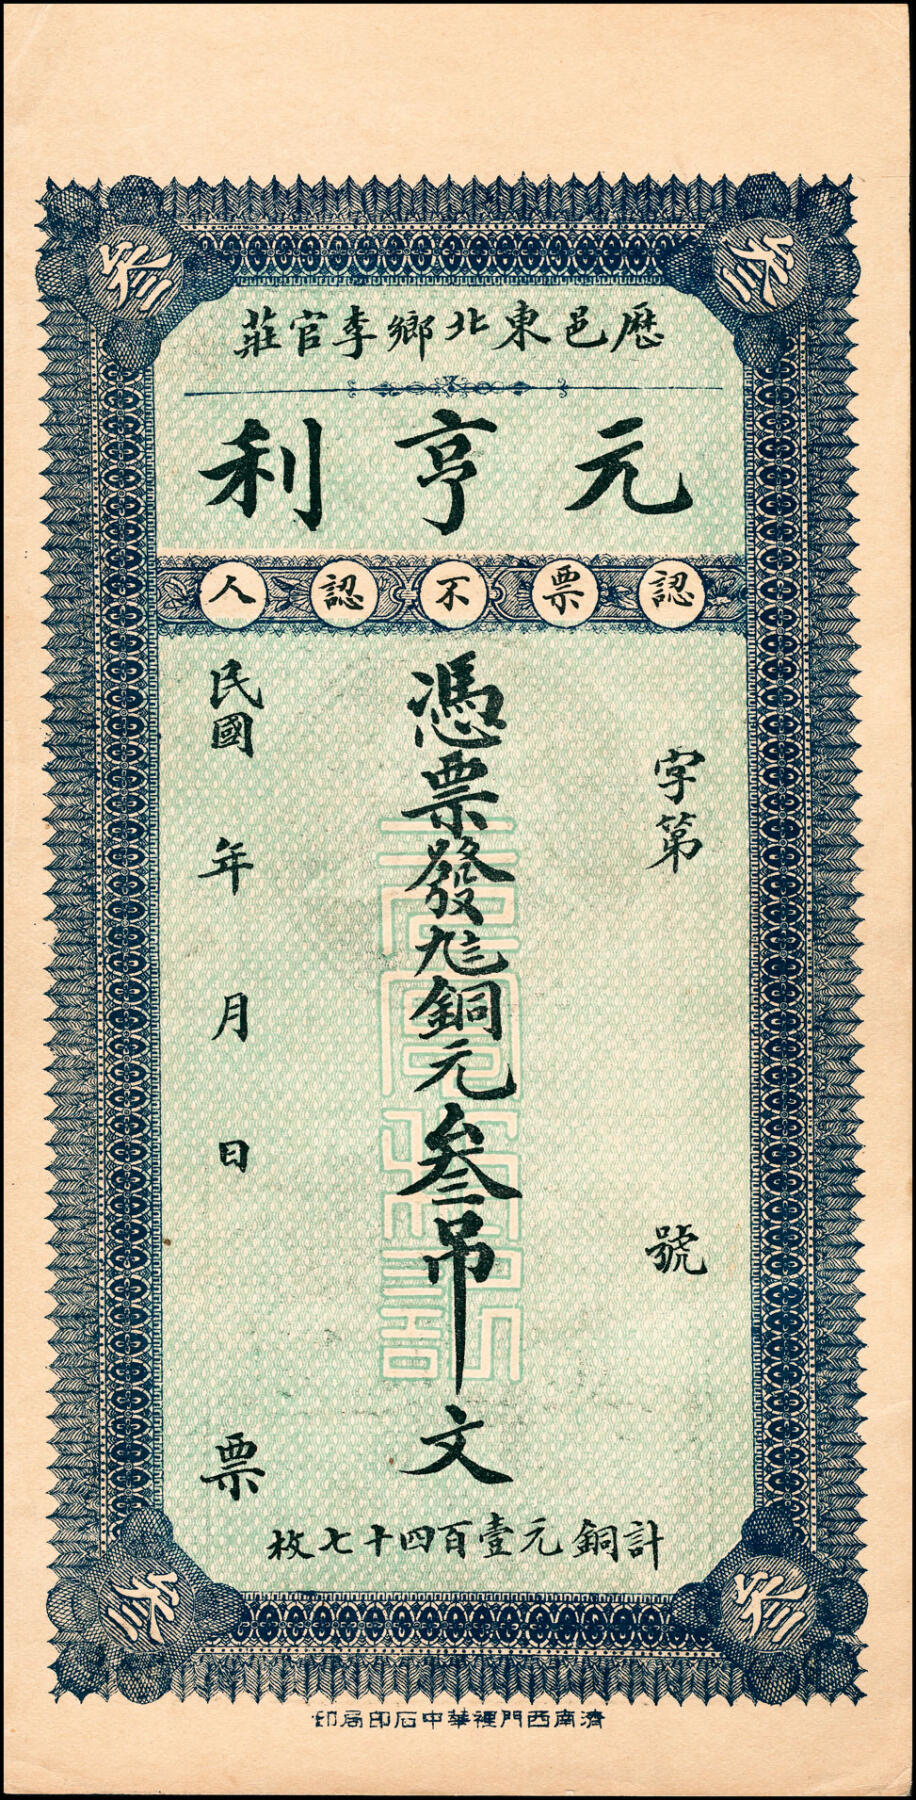 叁
叁
厯邑東北鄉李官莊
元亨利
認票不認人
字第 號
憑票發銅元叁吊文
民國 年 月 日 票
計銅元壹百四十七枚
叁
叁
濟南西門裡華中石印局印